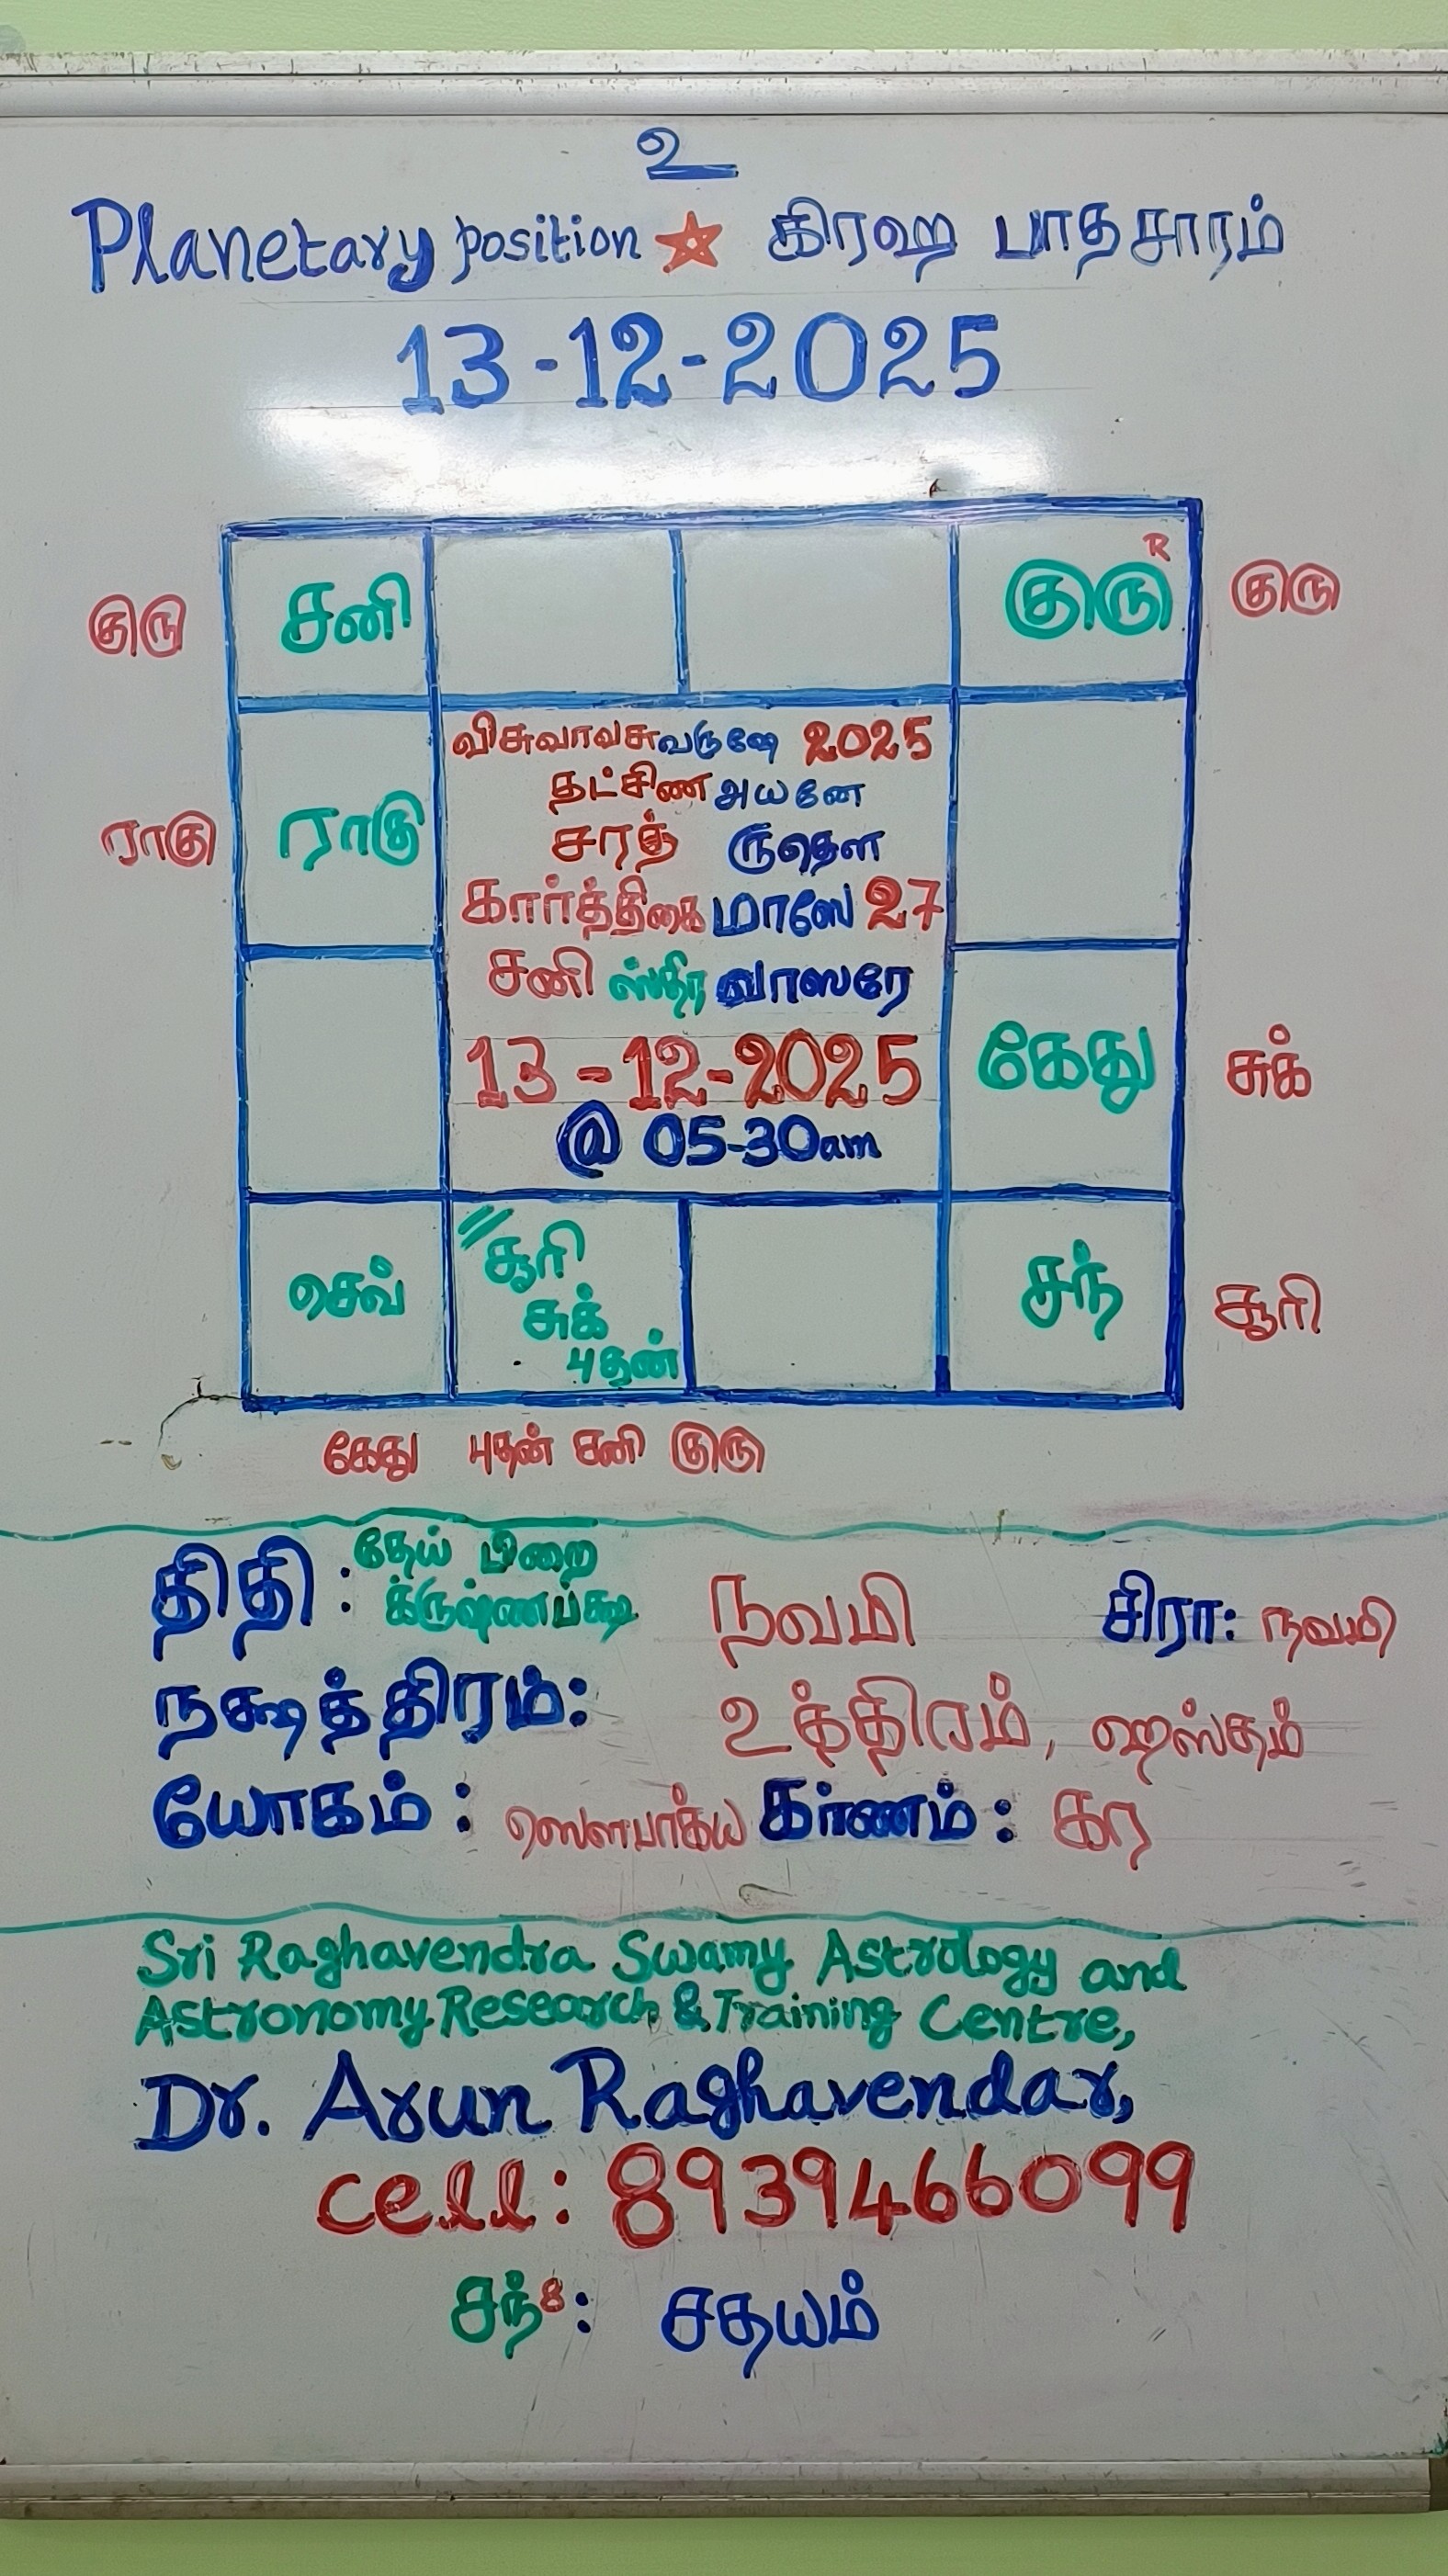 உ
Planetary position ☆ கிரஹ பாதசாரம்
13-12-2025
R
குரு சனி குரு குரு
விசுவாவசுவருஷே 2025
தட்சிண அயனே
ராகு ராகு சரத் ருதௌ
கார்த்திகை மாஸே 27
சனி ஸ்திர வாஸரே
13-12-2025 கேது சுக்
@ 05-30am
செவ் சூரி சந் சூரி
சுக்
புதன்
கேது புதன் சனி குரு
தேய் பிறை
திதி : க்ருஷ்ணபக்ஷ நவமி சிரா: நவமி
நக்ஷத்திரம்: உத்திரம், ஹஸ்தம்
யோகம் : ஸௌபாக்ய கரணம் : கர
Sri Raghavendra Swamy Astrology and
Astronomy Research & Training Centre,
Dr. Arun Raghavendar,
cell: 8939466099
சந்8: சதயம்